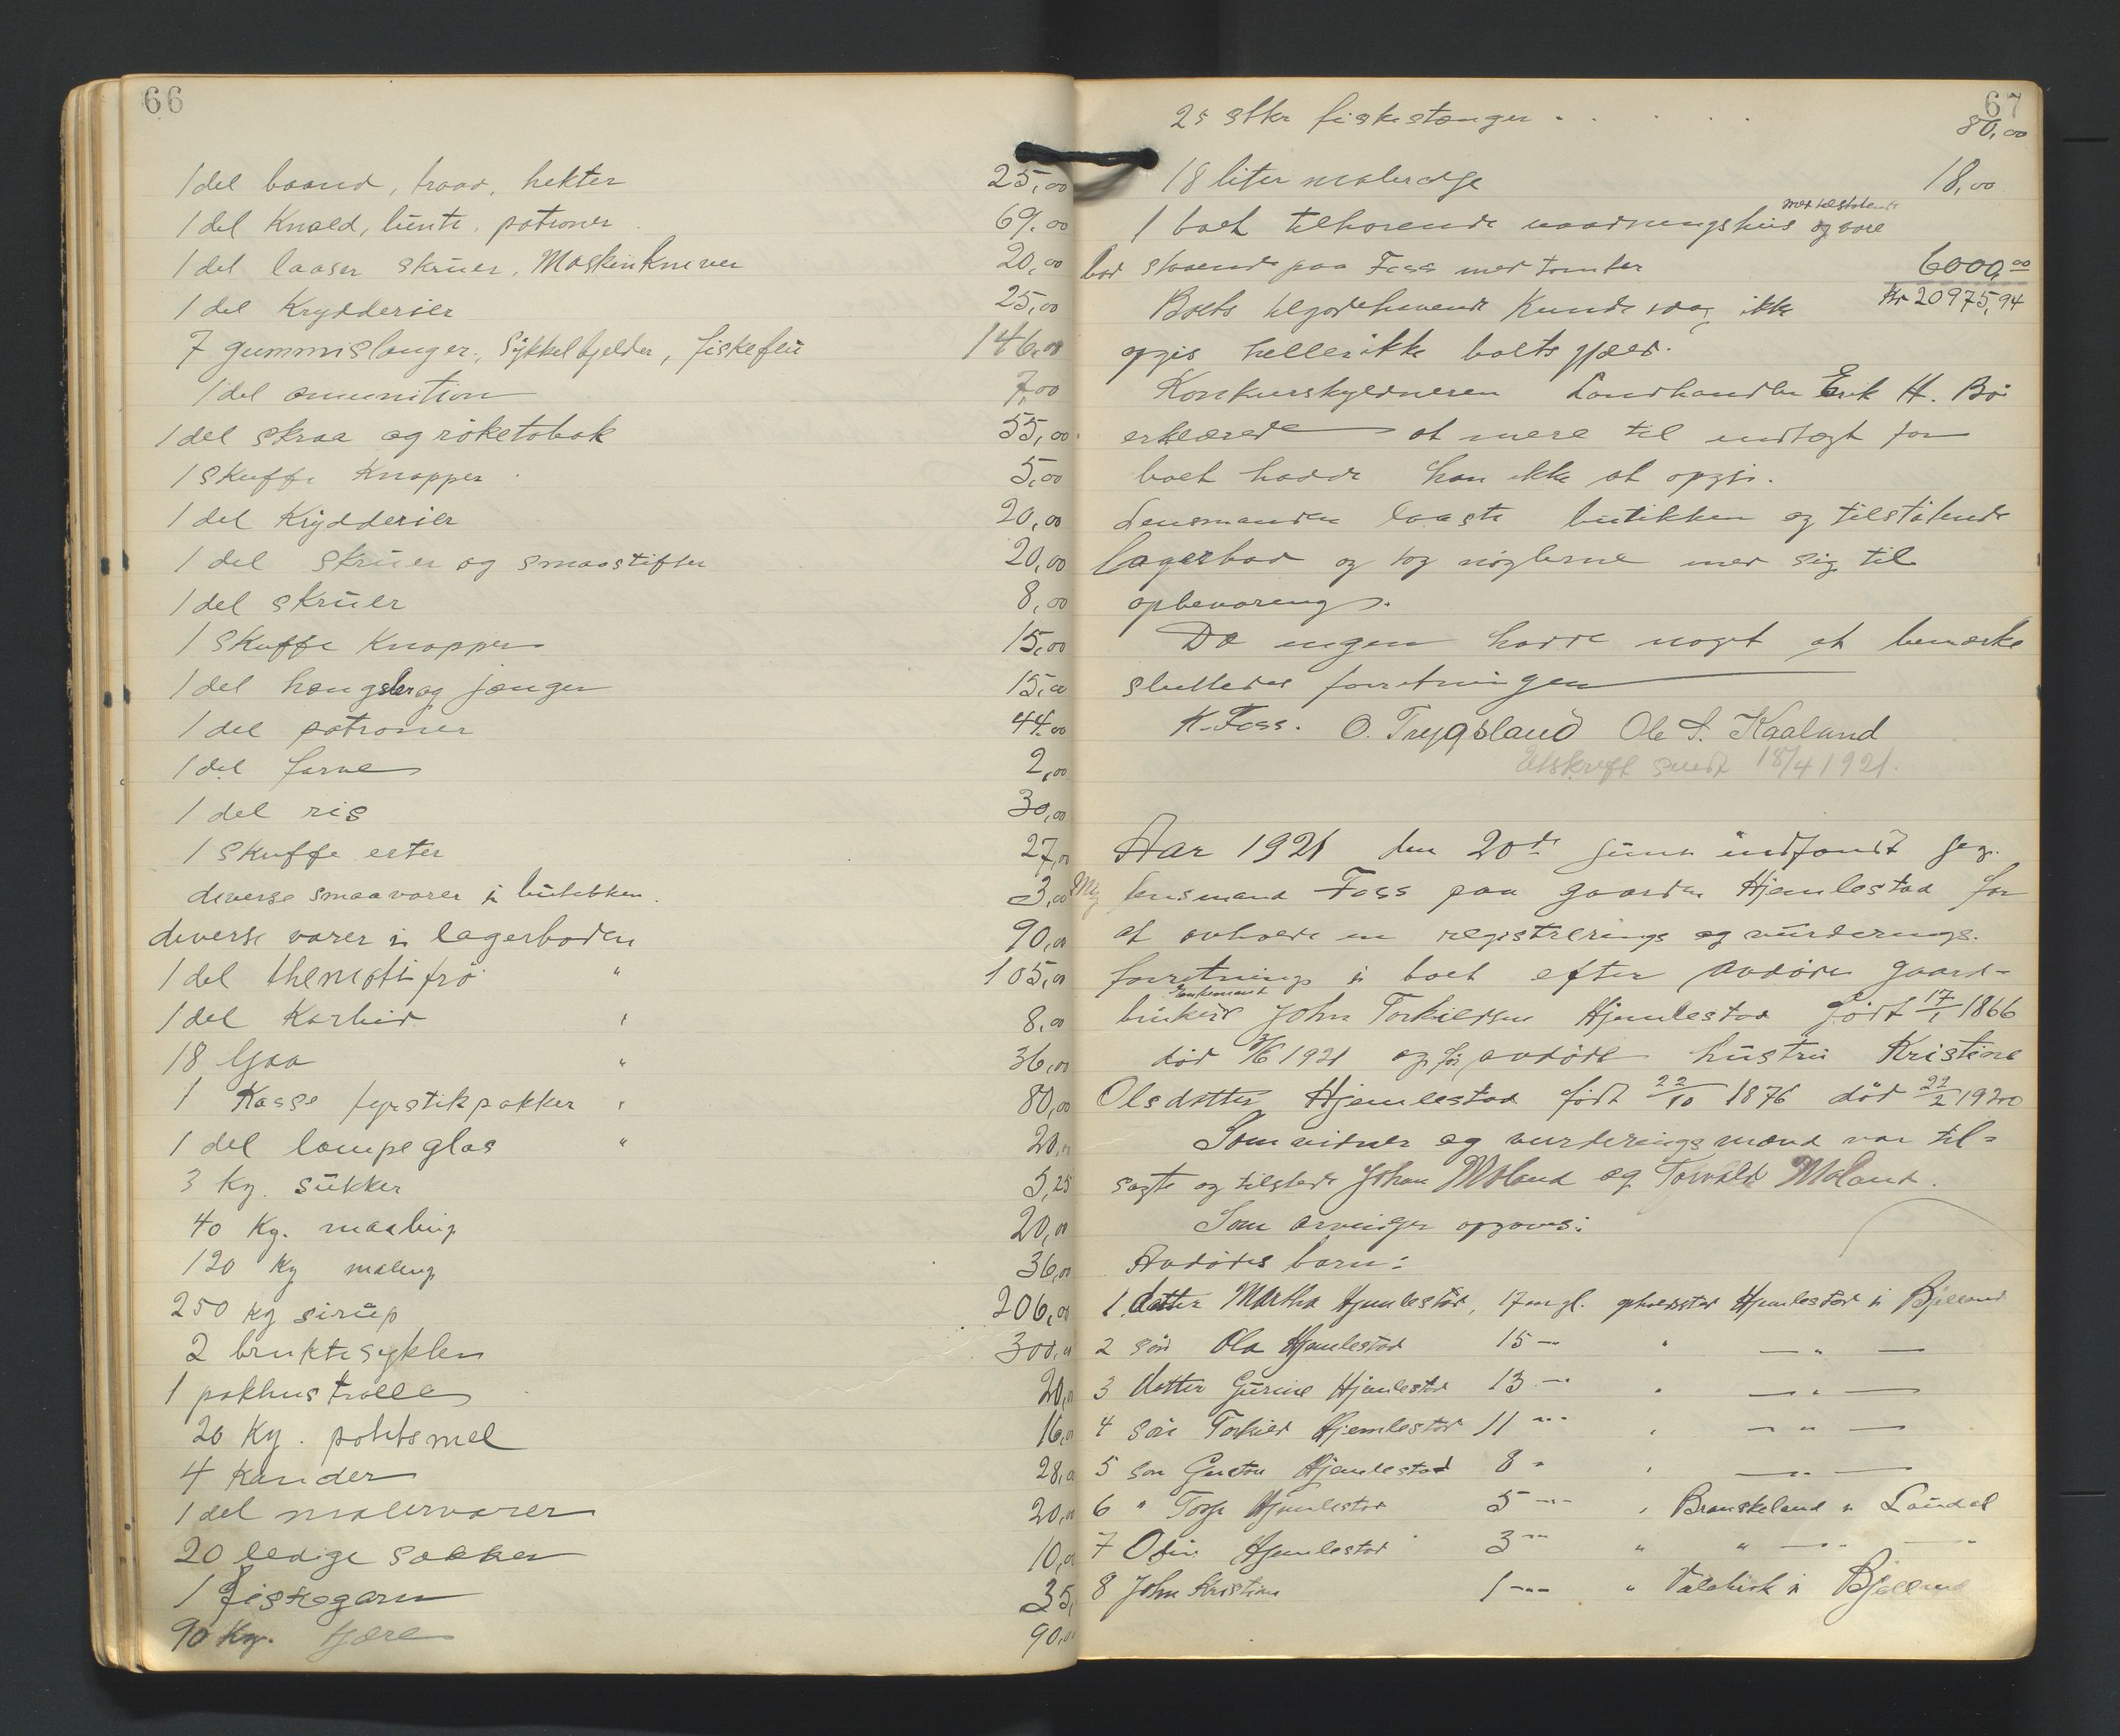 66
1 del baand, traad, hekter 25,00
1 del Knald, lunte, patroner 69,00
1 del laaser skruer, Maskinkniver 20,00
1 del Krydderier 25,00
7 gummislanger, Sykkelbjelder, fiskeflu 146,00
1 del amunition 7,00
1 del skraa og röketobak 55,00
1 skuffe Knapper 5,00
1 del Krydderier 20,00
1 del skruer og smaastifter 20,00
1 del skruer 8,00
1 skuffe knapper 15,00
1 del hengsler og jænger 15,00
1 del patroner 44,00
1 del farve 2,00
1 del ris 30,00
1 skuffe erter 27,00
diverse smaavarer i butikken. 3,00
diverse varer i lagerboden 90,00
1 del themotifrö " 105,00
1 del Karbid " 8,00
18 ljaa " 36,00
1 Kasse fyrstikpakker " 80,00
1 del lampeglas " 20,00
3 kg. sukker 5,25
40 Kg. maaling 20,00
120 kg maling 36,00
250 kg sirup 206,00
2 brukte sykler 300,00
1 pakhustralle 20,00
20 Kg. potetsmel 16,00
4 kander 28,00
1 del malervarer 20,00
20 ledige sækker 10,00
1 fiskegarn 35,
90 Kg. tjære 90,00
67
25 stkr fiskestænger . . . . . 80,00
18 liter maleralje 18,00
med tilstøtende
1 boet tilhørende vaadningshus og vare
bod staaende paa Foss med tomter 6000,00
Boets tilgodehavende kunde idag ikke Kr 20975,94
opgis heller ikke boets gjæld.
Konkurskyldneren Landhandler Erik H. Bö
erklærede at mere til indtægt for
boet hadde han ikke at opgi.
Lensmanden laaste butikken og tilstötende
lagerbod og tog nöglerne med sig til
opbevaring.
Da ingen hadde noget at bemærke
sluttedes forretningen
K. Foss. O. Trygsland Ole S. Kaaland
Utskrift sendt 18/4 1921.
Aar 1921 den 20de juni indfandt jeg
lensmand Foss paa gaarden Hjemlestad for
at avholde en registrerings og vurderings-
forretning i boet efter avdöde gaard-
Enkemand
bruker John Torkildsen Hjemlestad född 17/1 1866
död 7/6 1921 og før avdöde hustru Kristine
Olsdatter Hjemlestad födt 22/10 1876 död 22/2 1920
Som vidner og vurderingsmænd var til-
sagte og tilstede Johan Moland og Torvald Moland.
Som arvinger opgaves:
Avdödes barn:
1 datter Martha Hjemlestad, 17 aar gl. opholdssted Hjemlestad i Bjelland
2 sön Ola Hjemlestad 15 — " — " —
3 datter Gurine Hjemlestad 13 — " — " —
4 sön Torkild Hjemlestad 11 — " — " —
5 sön Gustav Hjemlestad 8 " " — " —
6 " Torje Hjemlestad 5 — " Brauskeland i Laudal
7 Odin Hjemlestad 3 — " " — " — "
8 John Kristian 1 — " i Bjelland